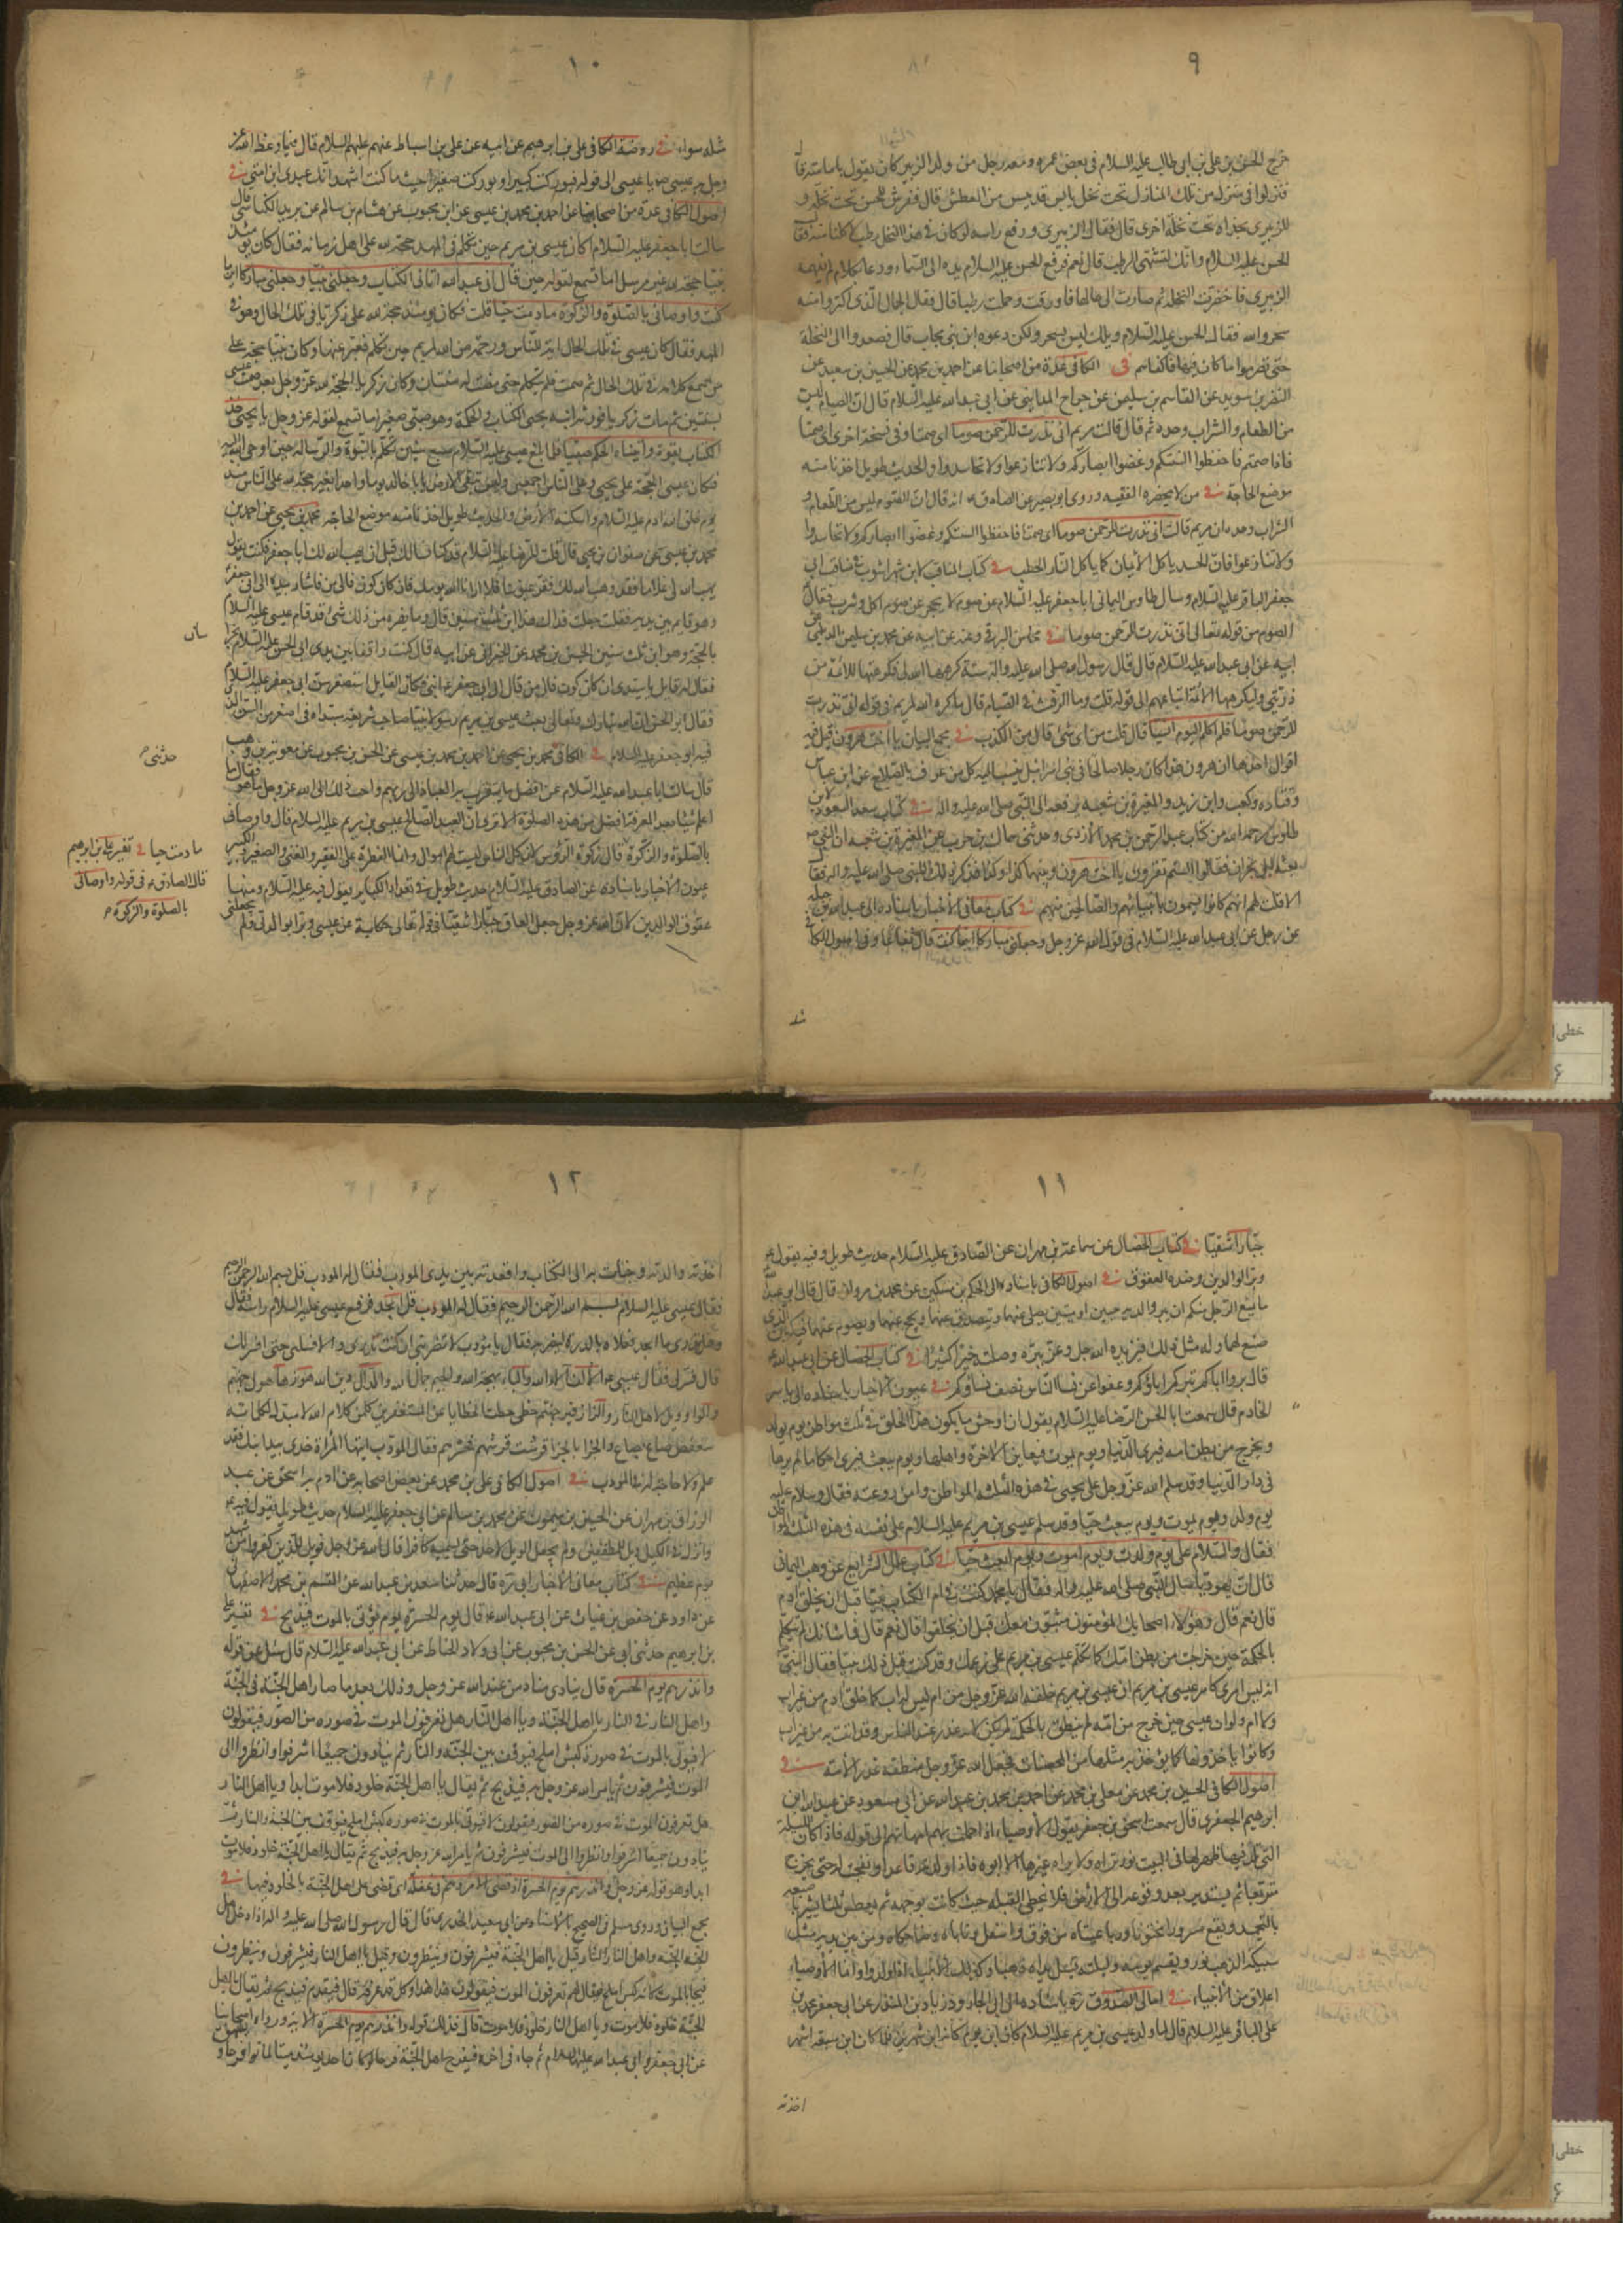 ٩
خرج الحسن بن علي بن ابي طالب عليه السلام في بعض عمره ومعه رجل من ولد الزبير كان يقول بامامته قال
فنزلوا في منزل من تلك المنازل تحت نخل يابس قد يبس من العطش قال ففرش للحسن تحت نخلة و
للزبيري بحذاه تحت نخلة اخرى قال فقال الزبيري ورفع راسه لو كان في هذا النخل رطب لاكلنا منه فقال
الحسن عليه السلام وانك لتشتهي الرطب قال نعم فرفع الحسن عليه السلام يده الى السماء ودعا بكلام لم يفهمه
الزبيري فاخضرت النخلة ثم صارت الى حالها فاورقت وحملت رطبا قال فقال الجمال الذي اكتروا منه
سحر والله فقال الحسن عليه السلام ويلك ليس بسحر ولكن دعوة ابن نبي مجاب قال فصعدوا الى النخلة
حتى تصرموا ما كان فيها فاكفاهم في الكافي عدة من اصحابنا عن احمد بن محمد عن الحسين بن سعيد عن
النضر بن سويد عن القاسم بن سليمن عن جراح المدايني عن ابي عبد الله عليه السلام قال ان الصيام ليس
من الطعام والشراب وحده ثم قال قالت مريم اني نذرت للرحمن صوما اي صمتا وفي نسخة اخرى اي صمتا
فاذا صمتم فاحفظوا السنتكم وغضوا ابصاركم ولا تنازعوا ولا تحاسدوا والحديث طويل اخذنا منه
موضع الحاجة في من لا يحضره الفقيه وروى ابو بصير عن الصادق ع انه قال ان الصوم ليس من الطعام و
الشراب وحده ان مريم قالت اني نذرت للرحمن صوما اي صمتا فاحفظوا السنتكم وغضوا ابصاركم ولا تحاسدوا
ولا تنازعوا فان الحسد ياكل الايمان كما ياكل النار الحطب في كتاب المناقب لابن شهراشوب في مناقب ابي
جعفر الباقر عليه السلام وسال طاوس اليماني ابا جعفر عليه السلام عن صوم لا يحجز عن صوم اكل وشرب فقال
الصوم من قوله تعالى اني نذرت للرحمن صوما في محاسن البرقي وعنه عن ابيه عن محمد بن سليمن الديلمي عن
ابيه عن ابي عبد الله عليه السلام قال قال رسول الله صلى الله عليه واله ستة كرهها الله لي فكرهتها للائمة من
ذريتي وليكرهها الائمة لاتباعهم الى قوله قلت وما الرفث في الصيام قال ما كره الله لمريم في قوله اني نذرت
للرحمن صوما فلن اكلم اليوم انسيا قال قلت من اي شئ قال من الكذب في مجمع البيان يا اخت هرون قيل فيه
اقوال احدها ان هرون هذا كان رجلا صالحا في بني اسرائيل ينسب اليه كل من عرف بالصلاح عن ابن عباس
وقتادة وكعب وابن زيد والمغيرة بن شعبة يرفعه الى النبي صلى الله عليه واله في كتاب سعد السعود لابن
طاوس رحمه الله من كتاب عبد الرحمن بن محمد الازدي وحدثني سماك بن حرب عن المغيرة بن شعبة ان النبي ص
بعثه الى نجران فقالوا الستم تقرؤن يا اخت هرون وبينهما كذا وكذا فذكر ذلك للنبي صلى الله عليه واله فقال
الا قلت لهم انهم كانوا يسمون بانبيائهم والصالحين منهم في كتاب معاني الاخبار باسناده الى عبد الله بن جبلة
عن رجل عن ابي عبد الله عليه السلام في قول الله عز وجل وجعلني مباركا اينما كنت قال نفاعا وفي اصول الكافي
مثله
١٠
مثله سواء في روضة الكافي علي بن ابرهيم عن ابيه عن علي بن اسباط عنهم عليهم السلام قال فيما وعظ الله عز
وجل به عيسى ص يا عيسى الى قوله فبوركت كبيرا وبوركت صغيرا حيث ما كنت اشهد انك عبدي ابن امتي في
اصول الكافي عدة من اصحابنا عن احمد بن محمد بن عيسى عن ابن محبوب عن هشام بن سالم عن بريد الكناسي قال
سالت ابا جعفر عليه السلام اكان عيسى بن مريم حين تكلم في المهد حجة لله على اهل زمانه فقال كان يومئذ
نبيا حجة لله غير مرسل اما تسمع لقوله حين قال اني عبد الله اتاني الكتاب وجعلني نبيا وجعلني مباركا اينما
كنت واوصاني بالصلوة والزكوة ما دمت حيا قلت فكان يومئذ حجة لله على زكريا في تلك الحال وهو في
المهد فقال كان عيسى في تلك الحال اية للناس ورحمة من الله لمريم حين تكلم فعبر عنها وكان نبيا حجة على
من سمع كلامه في تلك الحال ثم صمت فلم يتكلم حتى مضت له سنتان وكان زكريا الحجة لله عز وجل بعد صمت عيسى
بسنتين ثم مات زكريا فورثه ابنه يحيى الكتاب والحكمة وهو صبي صغير اما تسمع لقوله عز وجل يا يحيى خذ
الكتاب بقوة واتيناه الحكم صبيا فلما بلغ عيسى عليه السلام سبع سنين تكلم بالنبوة والرسالة حين اوحى الله اليه
فكان عيسى الحجة على يحيى وعلى الناس اجمعين وليس تبقى الارض يا ابا خالد يوما واحدا بغير حجة لله على الناس منذ
يوم خلق الله ادم عليه السلام واسكنه الارض والحديث طويل اخذنا منه موضع الحاجة محمد بن يحيى عن احمد بن
محمد بن عيسى عن صفوان بن يحيى قال قلت للرضا عليه السلام قد كنا نسالك قبل ان يهب الله لك ابا جعفر فكنت تقول
يهب الله لي غلاما فقد وهب الله لك فقر عيوننا فلا ارانا الله يومك فان كان كون فالى من فاشار بيده الى ابي جعفر
وهو قايم بين يديه فقلت جعلت فداك هذا ابن ثلث سنين قال وما يضره من ذلك شئ قد قام عيسى عليه السلام
بالحجة وهو ابن ثلث سنين الحسين بن محمد عن الخيراني عن ابيه قال كنت واقفا بين يدي ابي الحسن عليه السلام بخراسان
فقال له قايل يا سيدي ان كان كون فالى من قال الى ابي جعفر ابني فكان القايل استصغر سن ابي جعفر عليه السلام
فقال ابو الحسن ان الله تبارك وتعالى بعث عيسى بن مريم رسولا نبيا صاحب شريعة مبتداة في اصغر من السن الذي
فيه ابو جعفر عليه السلام في الكافي محمد بن يحيى عن احمد بن محمد بن عيسى عن الحسن بن محبوب عن معوية بن وهب
قال سالت ابا عبد الله عليه السلام عن افضل ما يتقرب به العباد الى ربهم واحب ذلك الى الله عز وجل ما هو فقال ما
اعلم شيئا بعد المعرفة افضل من هذه الصلوة الا ترى ان العبد الصالح عيسى بن مريم عليه السلام قال واوصاني
بالصلوة والزكوة قال زكوة الرؤس لان كل الناس ليست لهم اموال وانما الفطرة على الفقير والغني والصغير والكبير
عيون الاخبار باسناده عن الصادق عليه السلام حديث طويل في تعداد الكبائر يقول فيه عليه السلام ومنها
عقوق الوالدين لان الله عز وجل جعل العاق جبارا شقيا في قوله تعالى حكاية عن عيسى وبرا بوالدتي ولم يجعلني
سان
حدثني م
ما دمت حيا في تفسير علي بن ابرهيم
قال الصادق ع في قوله واوصاني
بالصلوة والزكوة م
١١
جبارا شقيا في كتاب الخصال عن سماعة بن مهران عن الصادق عليه السلام حديث طويل وفيه يقول ع
وبر الوالدين وضده العقوق في اصول الكافي باسناده الى الحكم بن مسكين عن محمد بن مروان قال قال ابو عبد الله
ما يمنع الرجل منكم ان يبر والديه حيين او ميتين يصلي عنهما ويتصدق عنهما ويحج عنهما ويصوم عنهما فيكون الذي
صنع لهما وله مثل ذلك فيزيده الله جل وعز ببره وصلته خيرا كثيرا في كتاب الخصال عن ابي عبد الله ع
قال بروا اباكم تبركم ابناؤكم وعفوا عن نساء الناس تعف نساؤكم في عيون الاخبار باسناده الى ياسر
الخادم قال سمعت ابا الحسن الرضا عليه السلام يقول ان اوحش ما يكون هذا الخلق في ثلث مواطن يوم يولد
ويخرج من بطن امه فيرى الدنيا ويوم يموت فيعاين الاخرة واهلها ويوم يبعث فيرى احكاما لم يرها
في دار الدنيا وقد سلم الله عز وجل على يحيى في هذه الثلثة المواطن وامن روعته فقال وسلام عليه
يوم ولد ويوم يموت ويوم يبعث حيا وقد سلم عيسى بن مريم عليه السلام على نفسه في هذه الثلثة المواطن
فقال والسلام علي يوم ولدت ويوم اموت ويوم ابعث حيا في كتاب علل الشرايع عن وهب اليماني
قال ان يهوديا سال النبي صلى الله عليه واله فقال يا محمد كنت في ام الكتاب نبيا قبل ان يخلق ادم
قال نعم قال وهؤلاء اصحابك المؤمنون مثبتون معك قبل ان يخلقوا قال نعم قال فما شانك لم تتكلم
بالحكمة حين خرجت من بطن امك كما تكلم عيسى بن مريم على زعمك وقد كنت قبل ذلك نبيا فقال النبي
انه ليس امري كامر عيسى بن مريم ان عيسى بن مريم خلقه الله عز وجل من ام ليس له اب كما خلق ادم من غير اب
ولا ام ولو ان عيسى حين خرج من امه لم ينطق بالحكمة لم يكن لامه عذر عند الناس وقد اتت به من غير اب
وكانوا ياخذونها كما يؤخذ به مثلها من المحصنات فجعل الله عز وجل منطقه عذرا لامه في
اصول الكافي الحسين بن محمد عن معلى بن محمد عن احمد بن محمد بن عبد الله عن ابي مسعود عن عبد الله بن
ابرهيم الجعفري قال سمعت اسحق بن جعفر يقول الاوصياء اذا حملت بهم امهاتهم الى قوله فاذا كان الليلة
التي تلد فيها ظهر لها في البيت نور تراه ولا يراه غيرها الا ابوه فاذا ولدته قاعدا وتفتحت له حتى يخرج
متربعا ثم يستدير بعد وقوعه الى الارض فلا يخطي القبلة حيث كانت بوجهه ثم يعطس ثلثا يشير باصبعه
بالتحميد ويقع مسرورا مختونا ورباعيتاه من فوق واسفل وناباه وضاحكاه ومن بين يديه مثل
سبيكة الذهب نور ويقيم يومه وليلته تسيل يداه ذهبا وكذلك الانبياء اذا ولدوا وانما الاوصياء
اعلاق من الانبياء في امالي الصدوق ره باسناده الى ابي الجارود زياد بن المنذر عن ابي جعفر محمد بن
علي الباقر عليه السلام قال لما ولد عيسى بن مريم عليه السلام كان ابن يوم كانه ابن شهرين فلما كان ابن سبعة اشهر
اخذته
١٢
اخذته والدته وجاءت به الى الكتاب واقعدته بين يدي المؤدب فقال له المؤدب قل بسم الله الرحمن الرحيم
فقال عيسى عليه السلام بسم الله الرحمن الرحيم فقال له المؤدب قل ابجد فرفع عيسى عليه السلام راسه فقال
وهل تدري ما ابجد فعلاه بالدرة ليضربه فقال يا مؤدب لا تضربني ان كنت تدري والا فسلني حتى افسر لك
قال فسر لي فقال عيسى ع الالف آلاء الله والباء بهجة الله والجيم جمال الله والدال دين الله هوز هاء هول جهنم
والواو ويل لاهل النار والزاء زفير جهنم حطي حطت الخطايا عن المستغفرين كلمن كلام الله لا مبدل لكلماته
سعفص صاع بصاع والجزا بالجزا قرشت قرشهم فحشرهم فقال المؤدب ايتها المراة خذي بيد ابنك فقد
علم ولا حاجة له في المؤدب في اصول الكافي علي بن محمد عن بعض اصحابه عن ادم بن اسحق عن عبد
الرزاق بن مهران عن الحسين بن ميمون عن محمد بن سالم عن ابي جعفر عليه السلام حديث طويل يقول فيه ع
وانزل في الكيل ويل للمطففين ولم يجعل الويل لاحد حتى يسميه كافرا قال الله عز وجل فويل للذين كفروا من مشهد
يوم عظيم في كتاب معاني الاخبار ابي ره قال حدثنا سعد بن عبد الله عن القسم بن محمد الاصفهاني
عن داود عن حفص بن غياث عن ابي عبد الله ع قال يوم الحسرة يوم يؤتى بالموت فيذبح في تفسير علي
بن ابرهيم حدثني ابي عن الحسن بن محبوب عن ابي ولاد الحناط عن ابي عبد الله عليه السلام قال سئل عن قوله
وانذرهم يوم الحسرة قال ينادي مناد من عند الله عز وجل وذلك بعد ما صار اهل الجنة في الجنة
واهل النار في النار يا اهل الجنة ويا اهل النار هل تعرفون الموت في صورة من الصور فيقولون
لا فيؤتى بالموت في صورة كبش املح فيوقف بين الجنة والنار ثم ينادون جميعا اشرفوا وانظروا الى
الموت فيشرفون ثم يامر الله عز وجل به فيذبح ثم يقال يا اهل الجنة خلود فلا موت ابدا ويا اهل النار
هل تعرفون الموت في صورة من الصور فيقولون لا فيؤتى بالموت في صورة كبش املح فيوقف بين الجنة والنار ثم
ينادون جميعا اشرفوا وانظروا الى الموت فيشرفون ثم يامر الله عز وجل به فيذبح ثم يقال يا اهل الجنة خلود فلا موت
ابدا وهو قوله عز وجل وانذرهم يوم الحسرة اذ قضي الامر وهم في غفلة اي قضي على اهل الجنة بالخلود فيها في
مجمع البيان وروى مسلم في الصحيح بالاسناد عن ابي سعيد الخدري قال قال رسول الله صلى الله عليه واله اذا دخل اهل
الجنة الجنة واهل النار النار قيل يا اهل الجنة فيشرفون وينظرون وقيل يا اهل النار فيشرفون وينظرون
فيجاء بالموت كانه كبش املح فيقال لهم تعرفون الموت فيقولون هذا هذا وكل قد عرفه قال فيقدم فيذبح ثم يقال يا اهل
الجنة خلود فلا موت ويا اهل النار خلود فلا موت قال فذلك قوله وانذرهم يوم الحسرة الاية ورواه اصحابنا
عن ابي جعفر وابي عبد الله عليهما السلام ثم جاء في اخره فيفرح اهل الجنة فرحا لو كان احد يومئذ ميتا لماتوا فرحا و
خطی